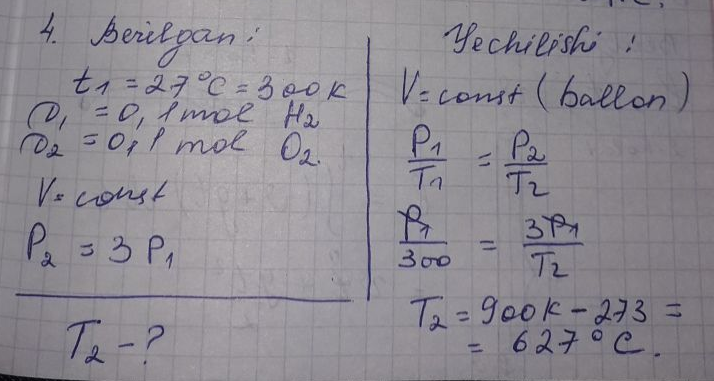 4. Berilgan:
t₁ = 27°C = 300K
υ₁ = 0,1 mol H₂
υ₂ = 0,1 mol O₂.
V = const
P₂ = 3 P₁
T₂ - ?
Yechilishi:
V = const (ballon)
P₁/T₁ = P₂/T₂
P₁/300 = 3P₁/T₂
T₂ = 900K - 273 =
= 627°C.